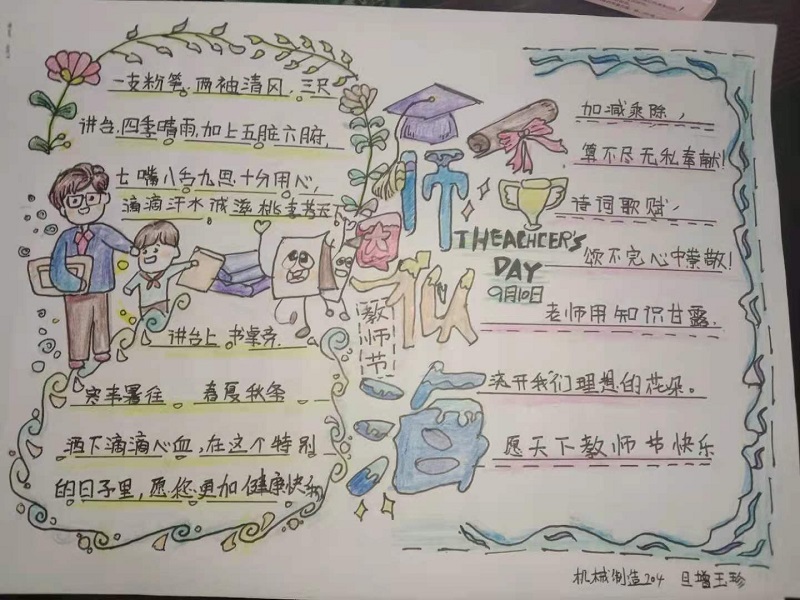 一支粉笔,两袖清风,三尺
讲台,四季晴雨,加上五脏六腑,
七嘴八舌,九思十分用心,
滴滴汗水诚滋桃李芳天
讲台上 书桌旁
寒来暑往 春夏秋冬
洒下滴滴心血,在这个特别
的日子里,愿您更加健康快和
师恩
似海
THEACHCER'S
DAY
9月10日
教师节
加减乘除,
算不尽无私奉献!
诗词歌赋,
颂不完心中崇敬!
老师用知识甘露.
浇开我们理想的花朵。
愿天下教师节快乐
机械制造204 旦增玉珍